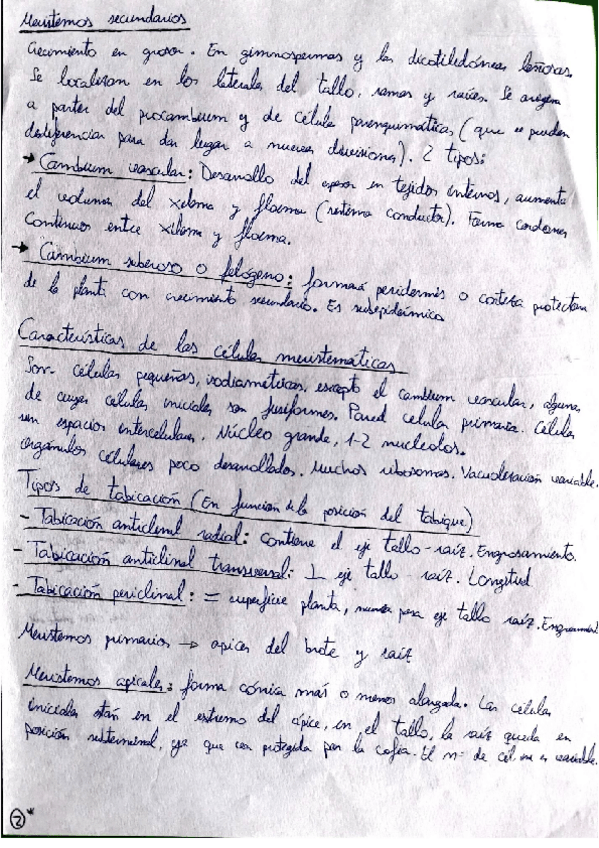 Meristemos secundarios
Crecimiento en grosor. En gimnospermas y las dicotiledóneas leñosas.
Se localizan en los laterales del tallo, ramas y raíces. Se origina
a partir del procambium y de célula parenquimáticas (que se pueden
desdiferenciar para dar lugar a nuevas divisiones). 2 tipos:
→ Cambium vascular: Desarrollo del grosor en tejidos internos, aumenta
el volumen del xilema y floema (sistema conductor). Forma cordones
continuos entre xilema y floema.
→ Cambium suberoso o felógeno: formará peridermis o corteza protectora
de la planta con crecimiento secundario. Es subepidérmico
Características de las células meristemáticas
Son células pequeñas, isodiamétricas, excepto el cambium vascular, algunas
de cuyas células iniciales son fusiformes. Pared celular primaria. Células
sin espacios intercelulares. Núcleo grande, 1-2 nucleolos.
Orgánulos celulares poco desarrollados. Muchos ribosomas. Vacuolización variable.
Tipos de tabicación (En función de la posición del tabique)
- Tabicación anticlinal radial: contiene el eje tallo-raíz. Engrosamiento.
- Tabicación anticlinal transversal: ⊥ eje tallo-raíz. Longitud
- Tabicación periclinal: = superficie planta, nunca pasa eje tallo raíz. Engrosamient
Meristemos primarios → apices del brote y raíz
Meristemos apicales: forma cónica más o menos alargada. Las células
iniciales están en el extremo del ápice, en el tallo, la raíz queda en
posición subterminal, ya que protegida por la cofia. El nº de cel es variable.
2